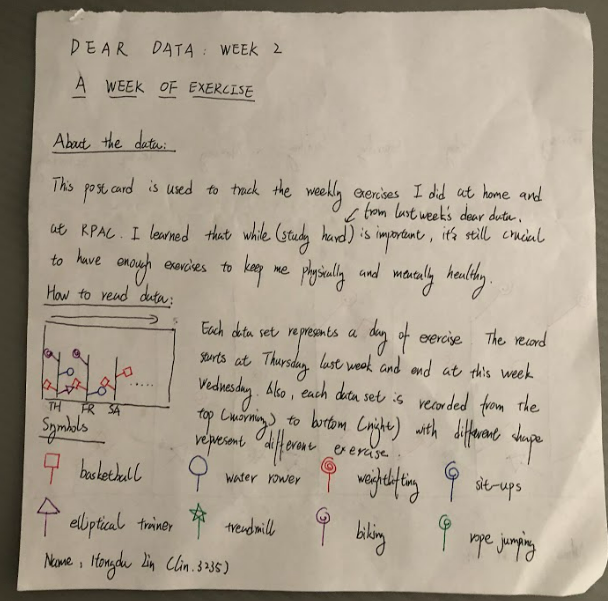 DEAR DATA: WEEK 2
A WEEK OF EXERCISE
About the data:
This postcard is used to track the weekly exercises I did at home and
from last week's dear data.
at RPAC. I learned that while (study hard) is important, it's still crucial
to have enough exercises to keep me physically and mentally healthy.
How to read data:
Each data set represents a day of exercise The record
starts at Thursday last week and end at this week
Wednesday. Also, each data set is recorded from the
top (morning) to bottom (night) with different shape
represent different exercise.
TH FR SA ......
Symbols
basketball water rower weightlifting sit-ups
elliptical trainer treadmill biking rope jumping
Name: Hongda Lin (lin.3235)